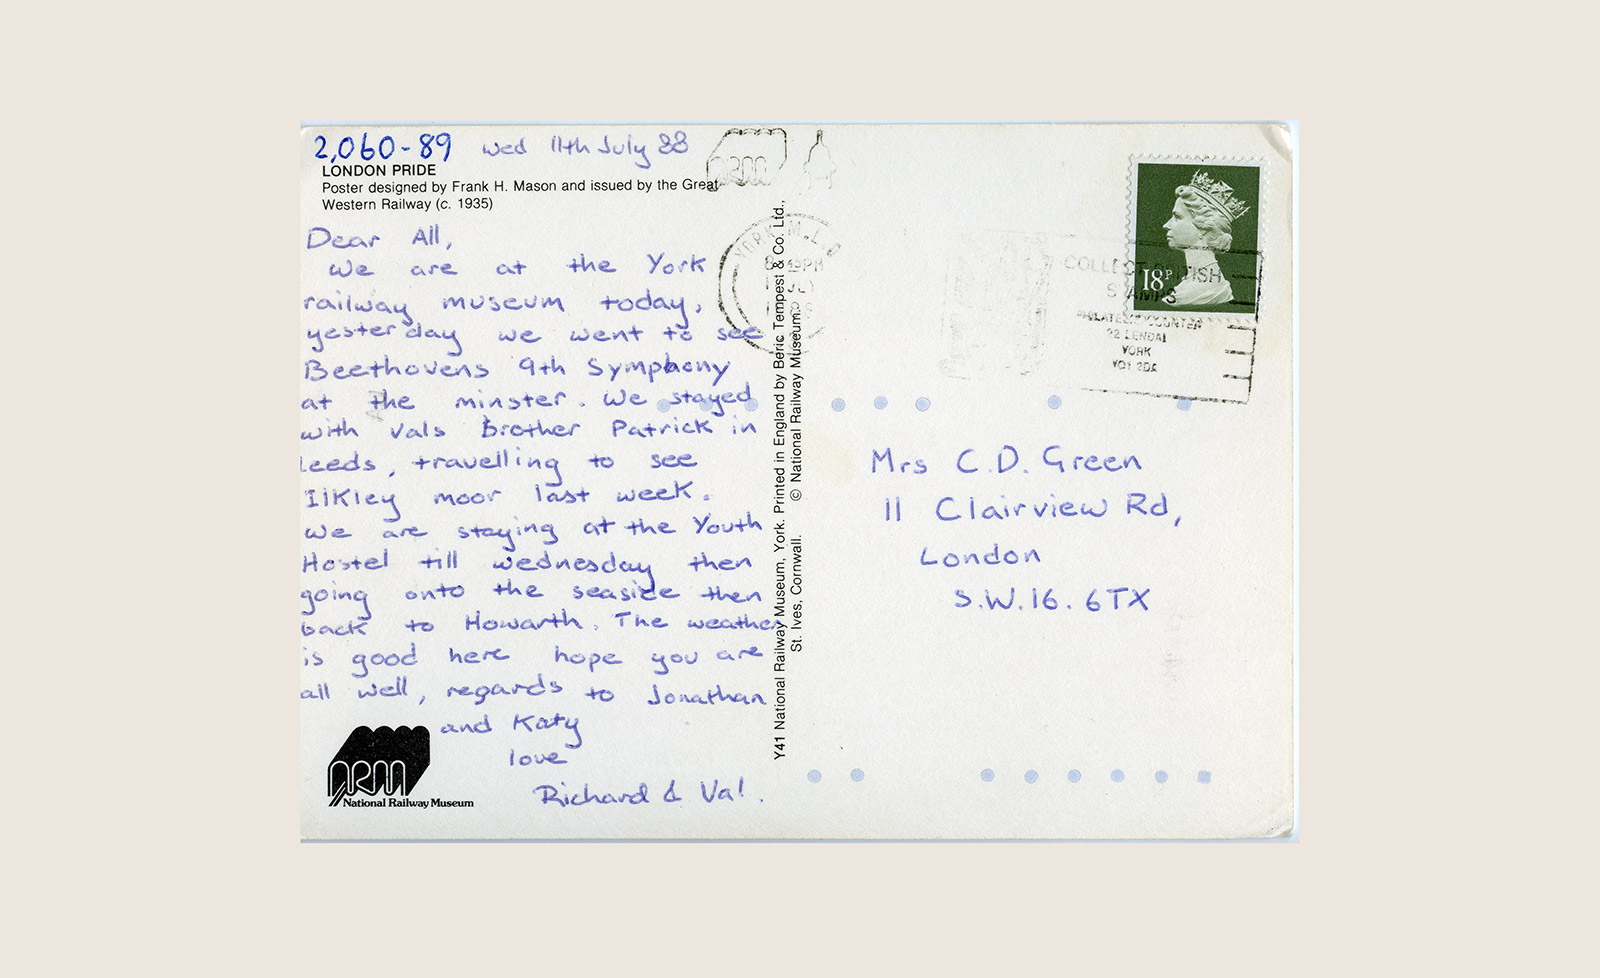 2,060-89 Wed 11th July 88
LONDON PRIDE
Poster designed by Frank H. Mason and issued by the Great
Western Railway (c. 1935)
Dear All,
We are at the York
railway museum today,
yesterday we went to see
Beethovens 9th Symphony
at the minster. We stayed
with Vals brother Patrick in
Leeds, travelling to see
Ilkley moor last week.
We are staying at the Youth
Hostel till wednesday then
going onto the seaside then
back to Howarth. The weather
is good here hope you are
all well, regards to Jonathan
and Katy
love
Richard & Val.
nrm
National Railway Museum
Y41 National Railway Museum, York. Printed in England by Beric Tempest & Co. Ltd.,
St. Ives, Cornwall. © National Railway Museum.
YORK M.L.O
PM
JLY
18P
COLLECT BRITISH
STAMPS
PHILATELIC COUNTER
LENDAL
YORK
YO1 2DA
Mrs C.D. Green
11 Clairview Rd,
London
S.W.16. 6TX